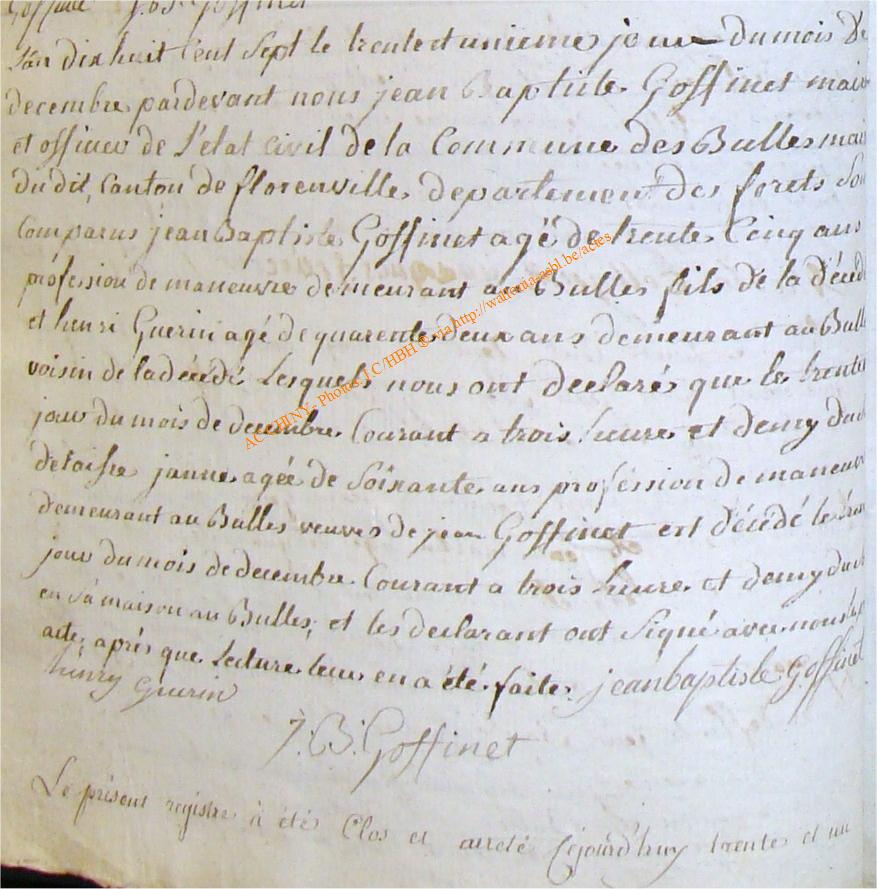 Goffinet J. os. Goffinet
L'an dix huit Cent Sept le trente et unieme jour du mois De
decembre pardevant nous jean Baptiste Goffinet maire
et officier de L'etat civil de la Commune des Bulles mairie
du dit, Canton de florenville departement des forets Sont
Comparus jean Baptiste Goffinet agé de trente Cinq ans
proféssion de maneuvre demeurant au Bulles fils de la décédé
et henri Guerin agé de quarente deux ans demeurant au Bulle
voisin de la décédé Lesquels nous ont declaré que le trente
jour du mois de decembre Courant a trois heure et demy du
jeanne agée de Soixante ans proféssion de maneuvre
demeurant au Bulles veuve de jean Goffinet est décédé le
jour du mois de decembre Courant a trois heure et demy du
en sa maison au Bulles, et les declarant ont Signé avec nous
acte, aprés que Lecture leur en a été faite jean baptiste Goffinet
henry Guerin
J. B. Goffinet
Le présent registre à été Clos et arreté Cejourd'huy trente et un
AC CHINY- Photos J.C/HBH © via http://wallonia-asbl.be/actes